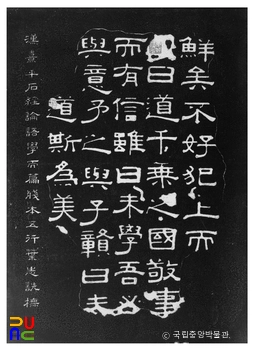 鮮矣不好犯上而
曰道千乘之國敬事
而有信雖曰未學吾必
與意予之與子贛曰未
道斯為美
漢熹平石經論語學而篇殘本五行葉志詵橅
© 국립중앙박물관.